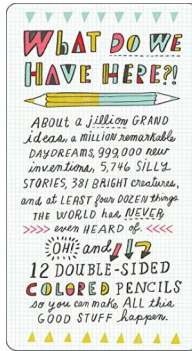 WhAT DO WE
HAVE HERE?!
ABOUT a jillion GRAND
ideas, a million remarkable
DAYDREAMS, 999,000 new
inventions, 5,746 SILLY
STORIES, 381 BRIGHT creatures,
and at LEAST four DOZEN things
THE WORLD has NEVER
even HEARD of.
OH! and
12 DOUBLE-SIDED
COLORED PENCILS
so you can make ALL this
GOOD STUFF happen.